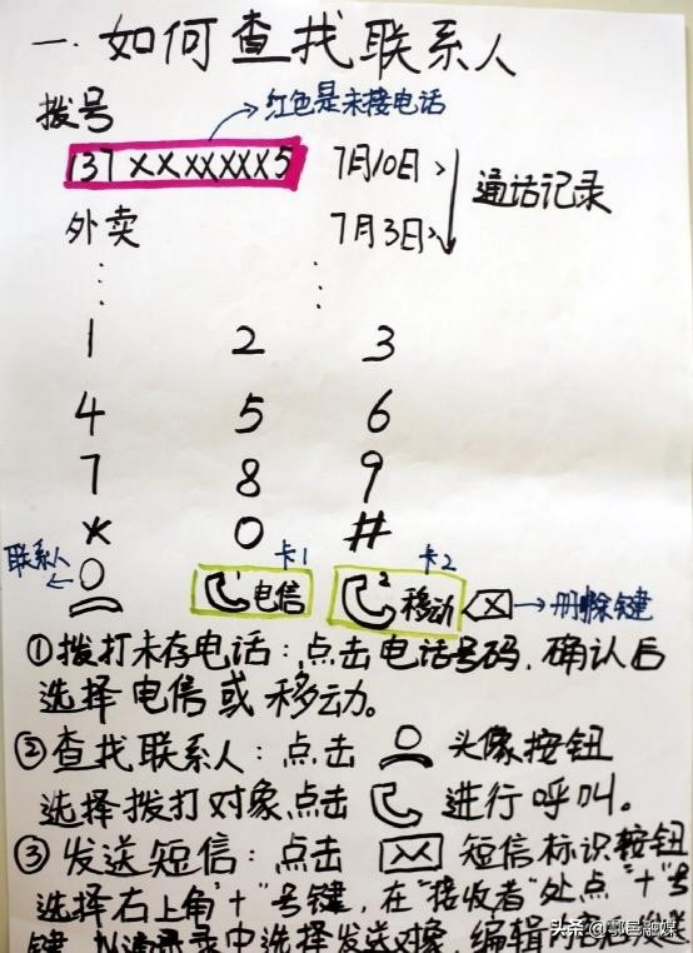 一. 如何查找联系人
拨号
红色是未接电话
137XXXXXXX5 7月10日>
通话记录
外卖 7月3日>
1 2 3
4 5 6
7 8 9
* 0 #
联系人
卡1 卡2
1 电信 2 移动 X 删除键
①拨打未存电话:点击电话号码,确认后
选择电信或移动。
②查找联系人:点击 头像按钮
选择拨打对象,点击 进行呼叫。
③发送短信:点击 短信标识按钮
选择右上角"+"号键,在"接收者"处点"+"号
键,从通讯录中选择发送对象,编辑内容后发送
头条@鄠邑融媒